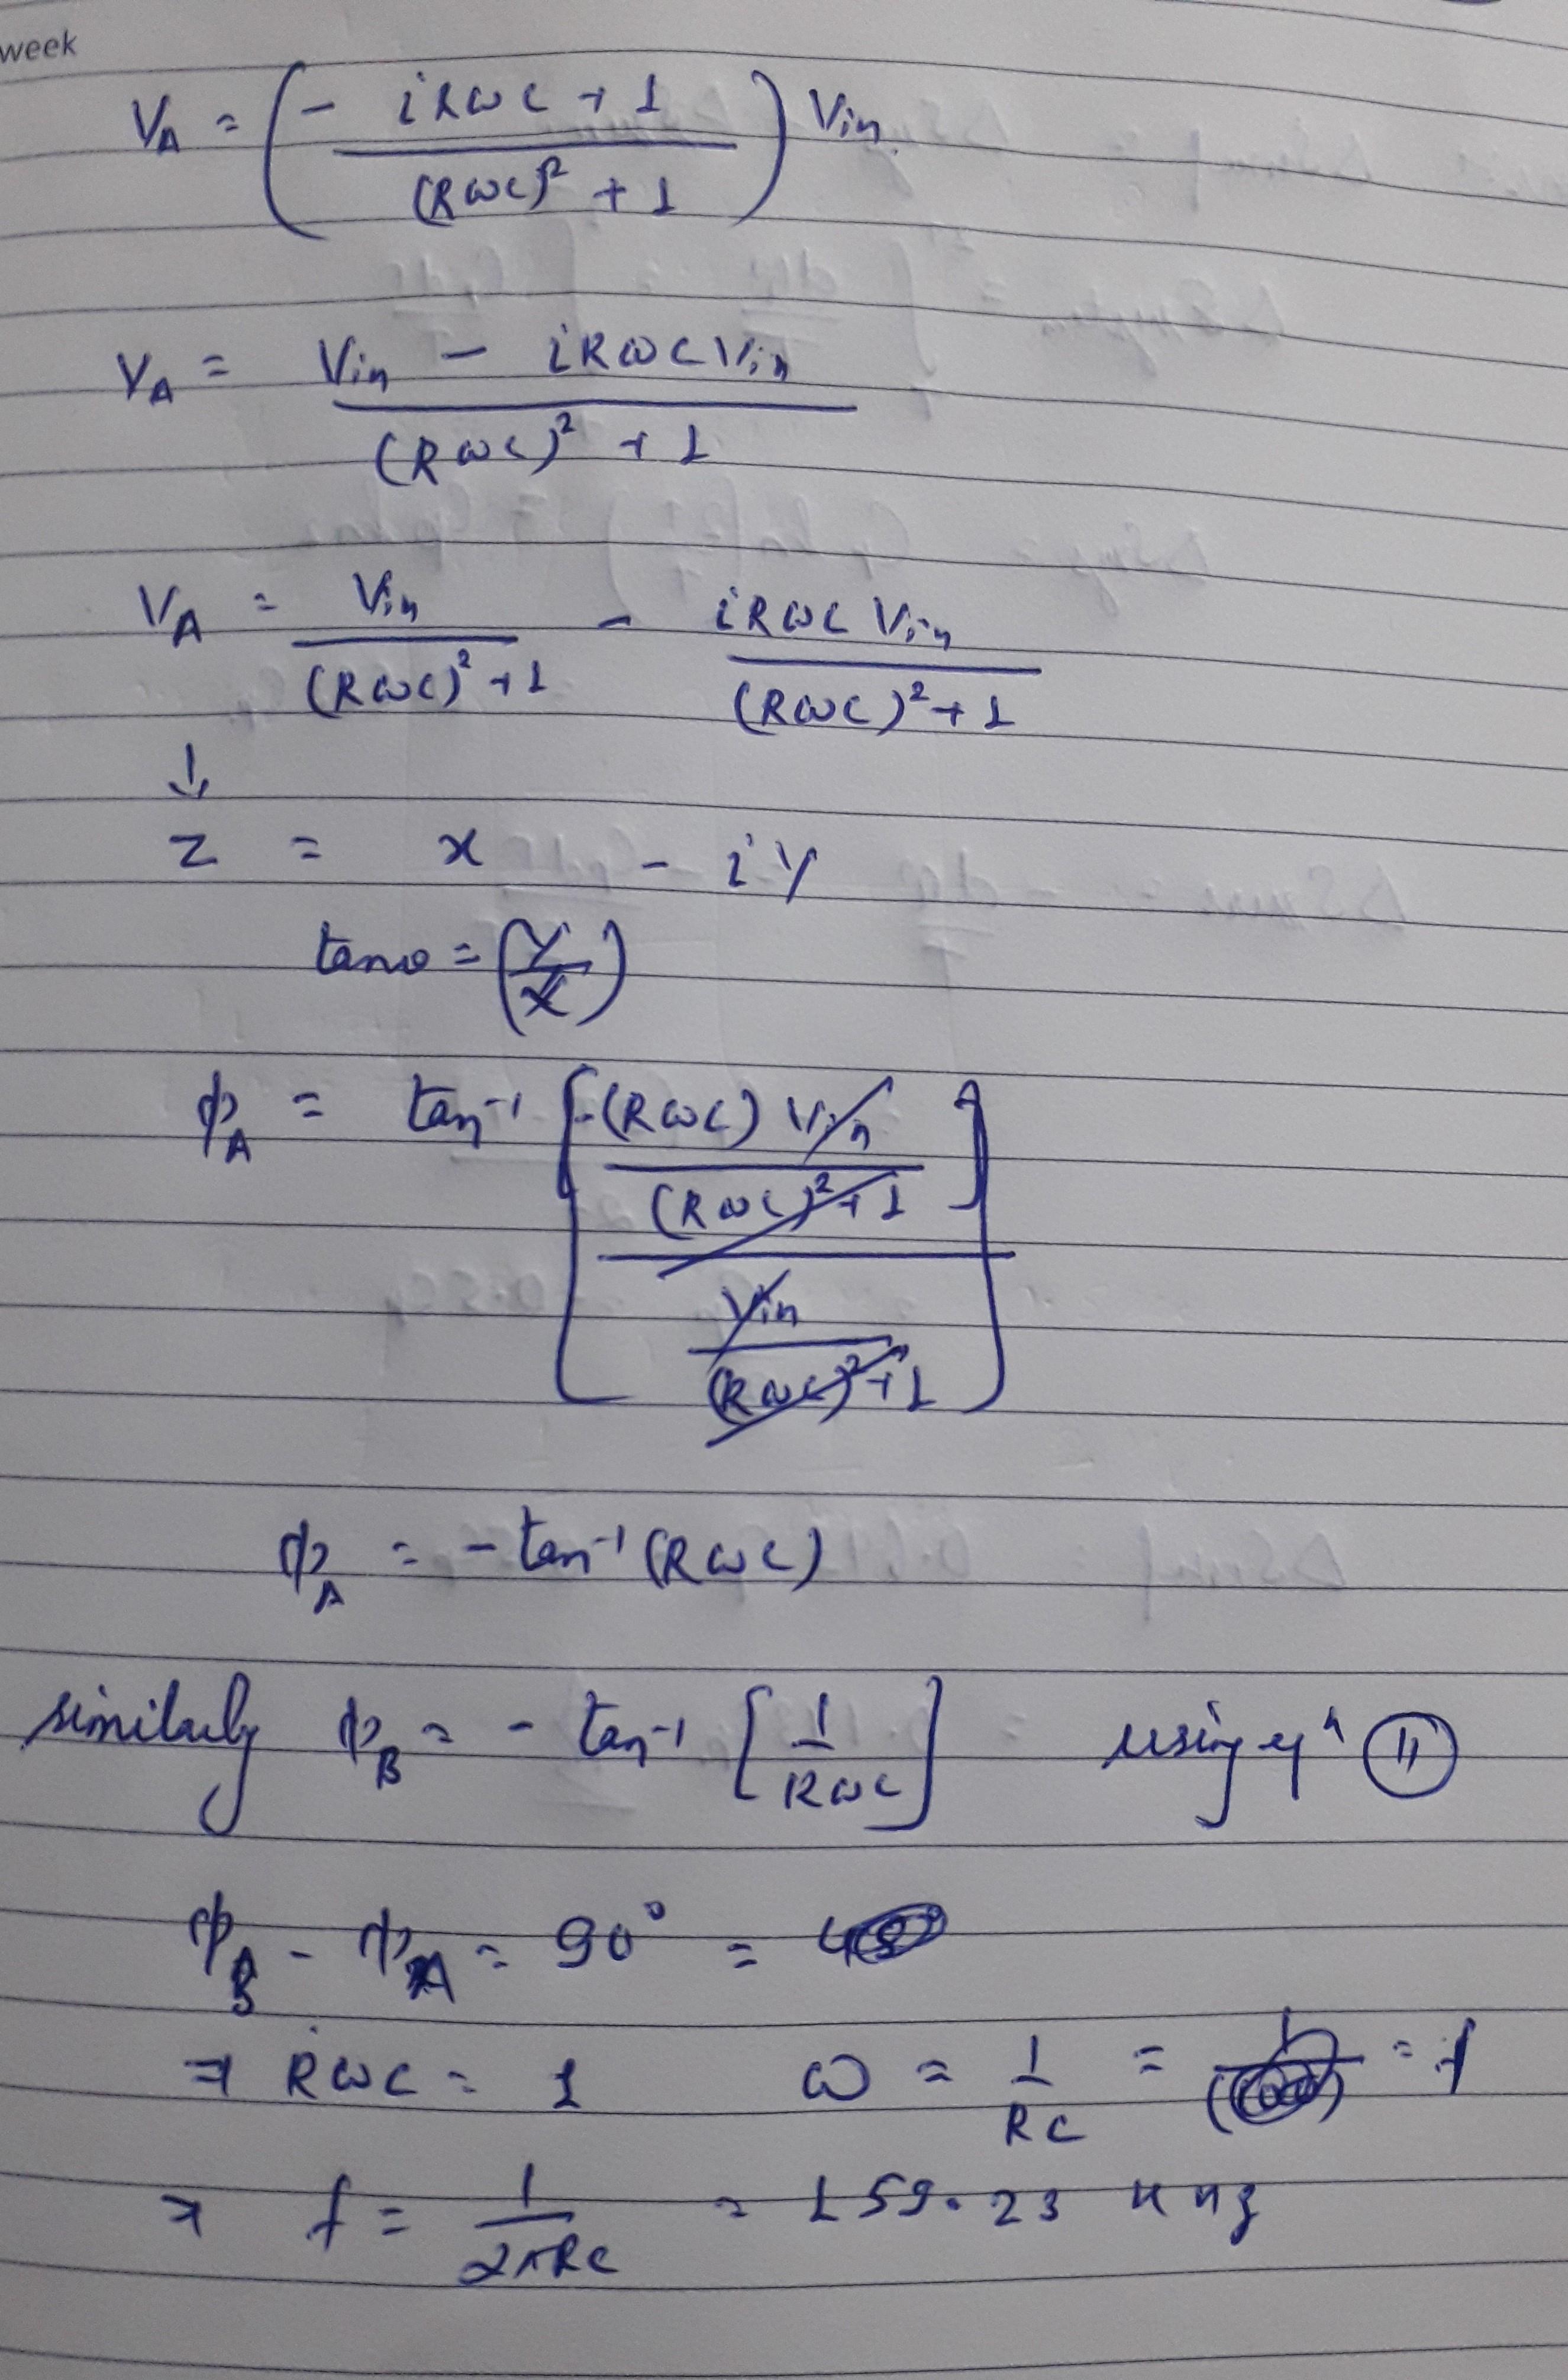 week
V_A = ( - iRωC + 1 / (RωC)² + 1 ) Vin.
V_A = Vin - iRωC Vin / (RωC)² + 1
V_A = Vin / (RωC)² + 1 - iRωC Vin / (RωC)² + 1
↓
z = x - iy
tanθ = (y/x)
φ_A = tan⁻¹ [ -(RωC) Vin / (RωC)² + 1 / Vin / (RωC)² + 1 ]
φ_A = - tan⁻¹ (RωC)
similarly φ_B = - tan⁻¹ [ 1 / RωC ] using eqⁿ (11)
φ_B - φ_A = 90° =
⇒ RωC = 1 ω = 1 / RC = = f
⇒ f = 1 / 2πRC = 159.23 KHz